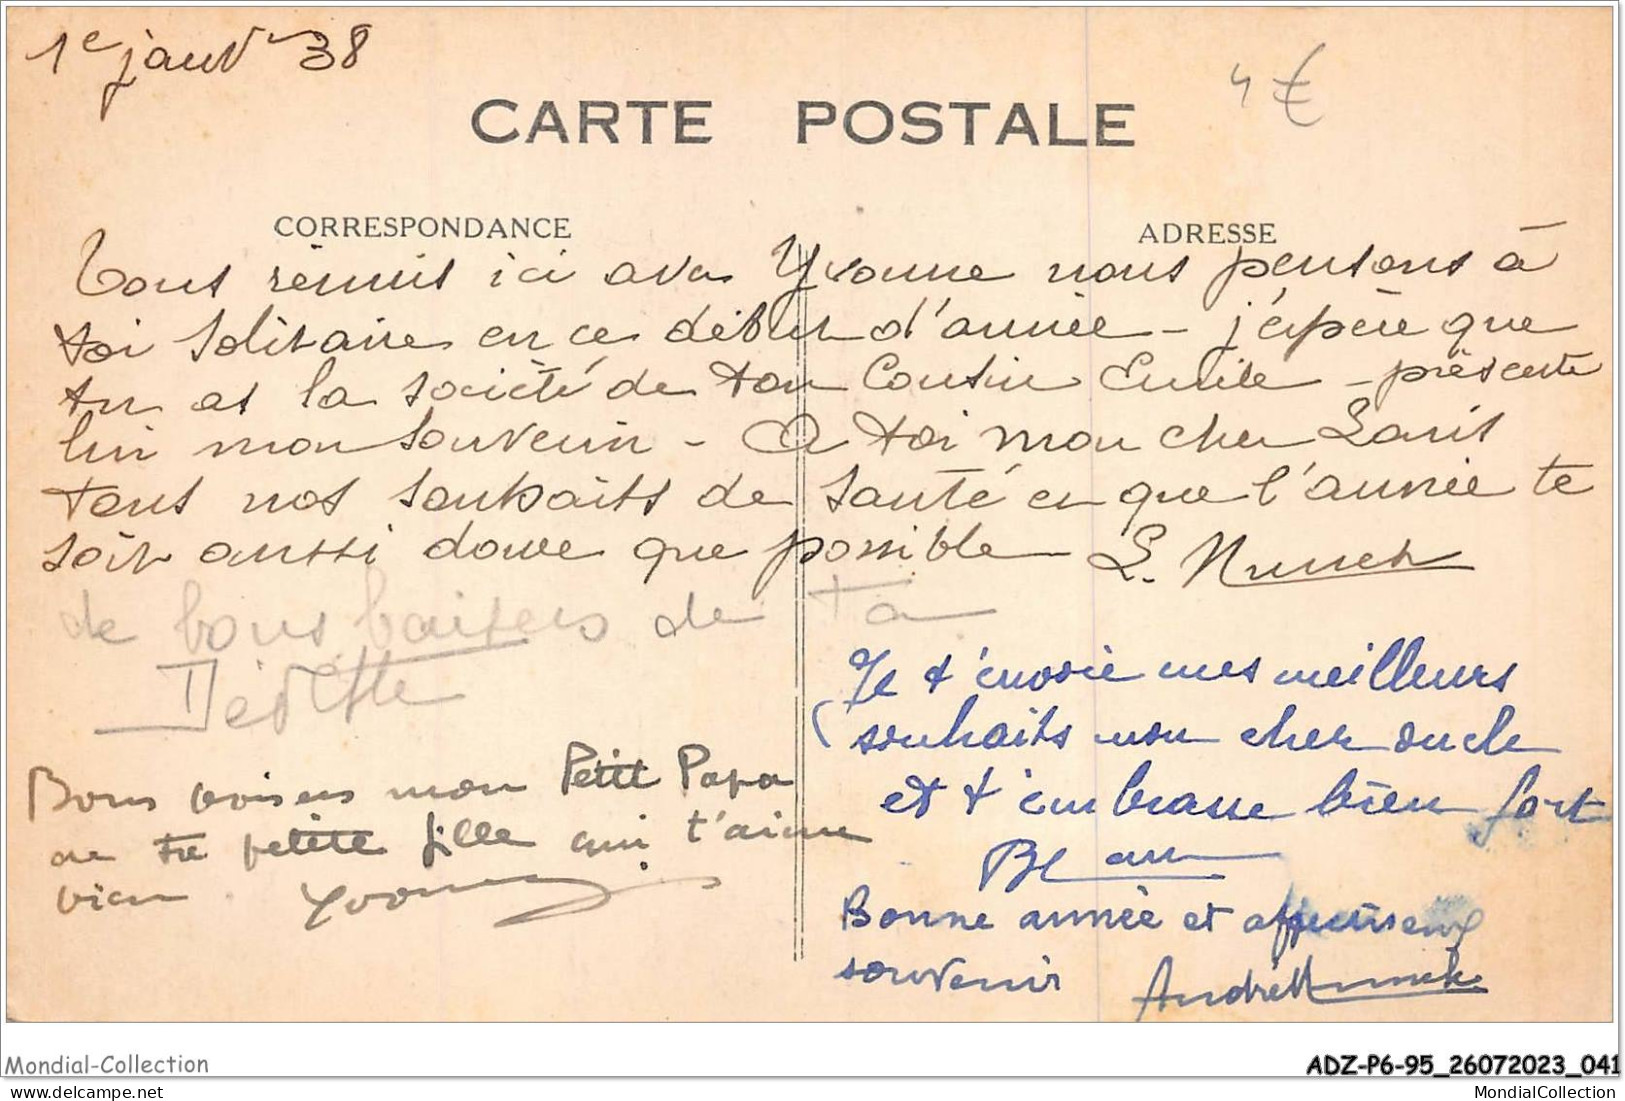 1e janv 38
4 €
CARTE POSTALE
CORRESPONDANCE
ADRESSE
Tous réunis ici avec Yvonne nous pensons à
toi solitaire en ce début d'année – j'espère que
tu as la société de ton Cousin Emile – présente
lui mon souvenir – A toi mon cher
tous nos souhaits de santé et que l'année te
soit aussi douce que possible L.
de bons baisers de ta
Dédette
Bons baisers mon Petit Papa
de ta petite fille qui t'aime
bien Yvonne
Je t'envoie mes meilleurs
souhaits mon cher oncle
et t'embrasse bien fort
Bonne année et affectueux
souvenir André
Mondial-Collection
ADZ-P6-95_26072023_041
MondialCollection